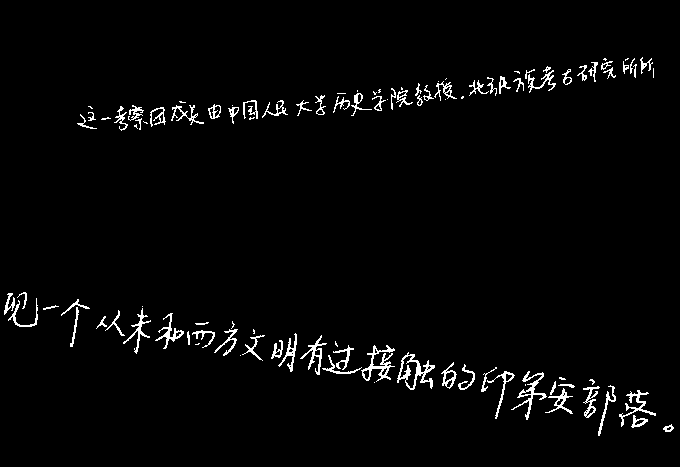 这一考察团成长由中国人民大学历史学院教授,北民族考古研究所所
见一个从未和西方文明有过接触的印第安部落。